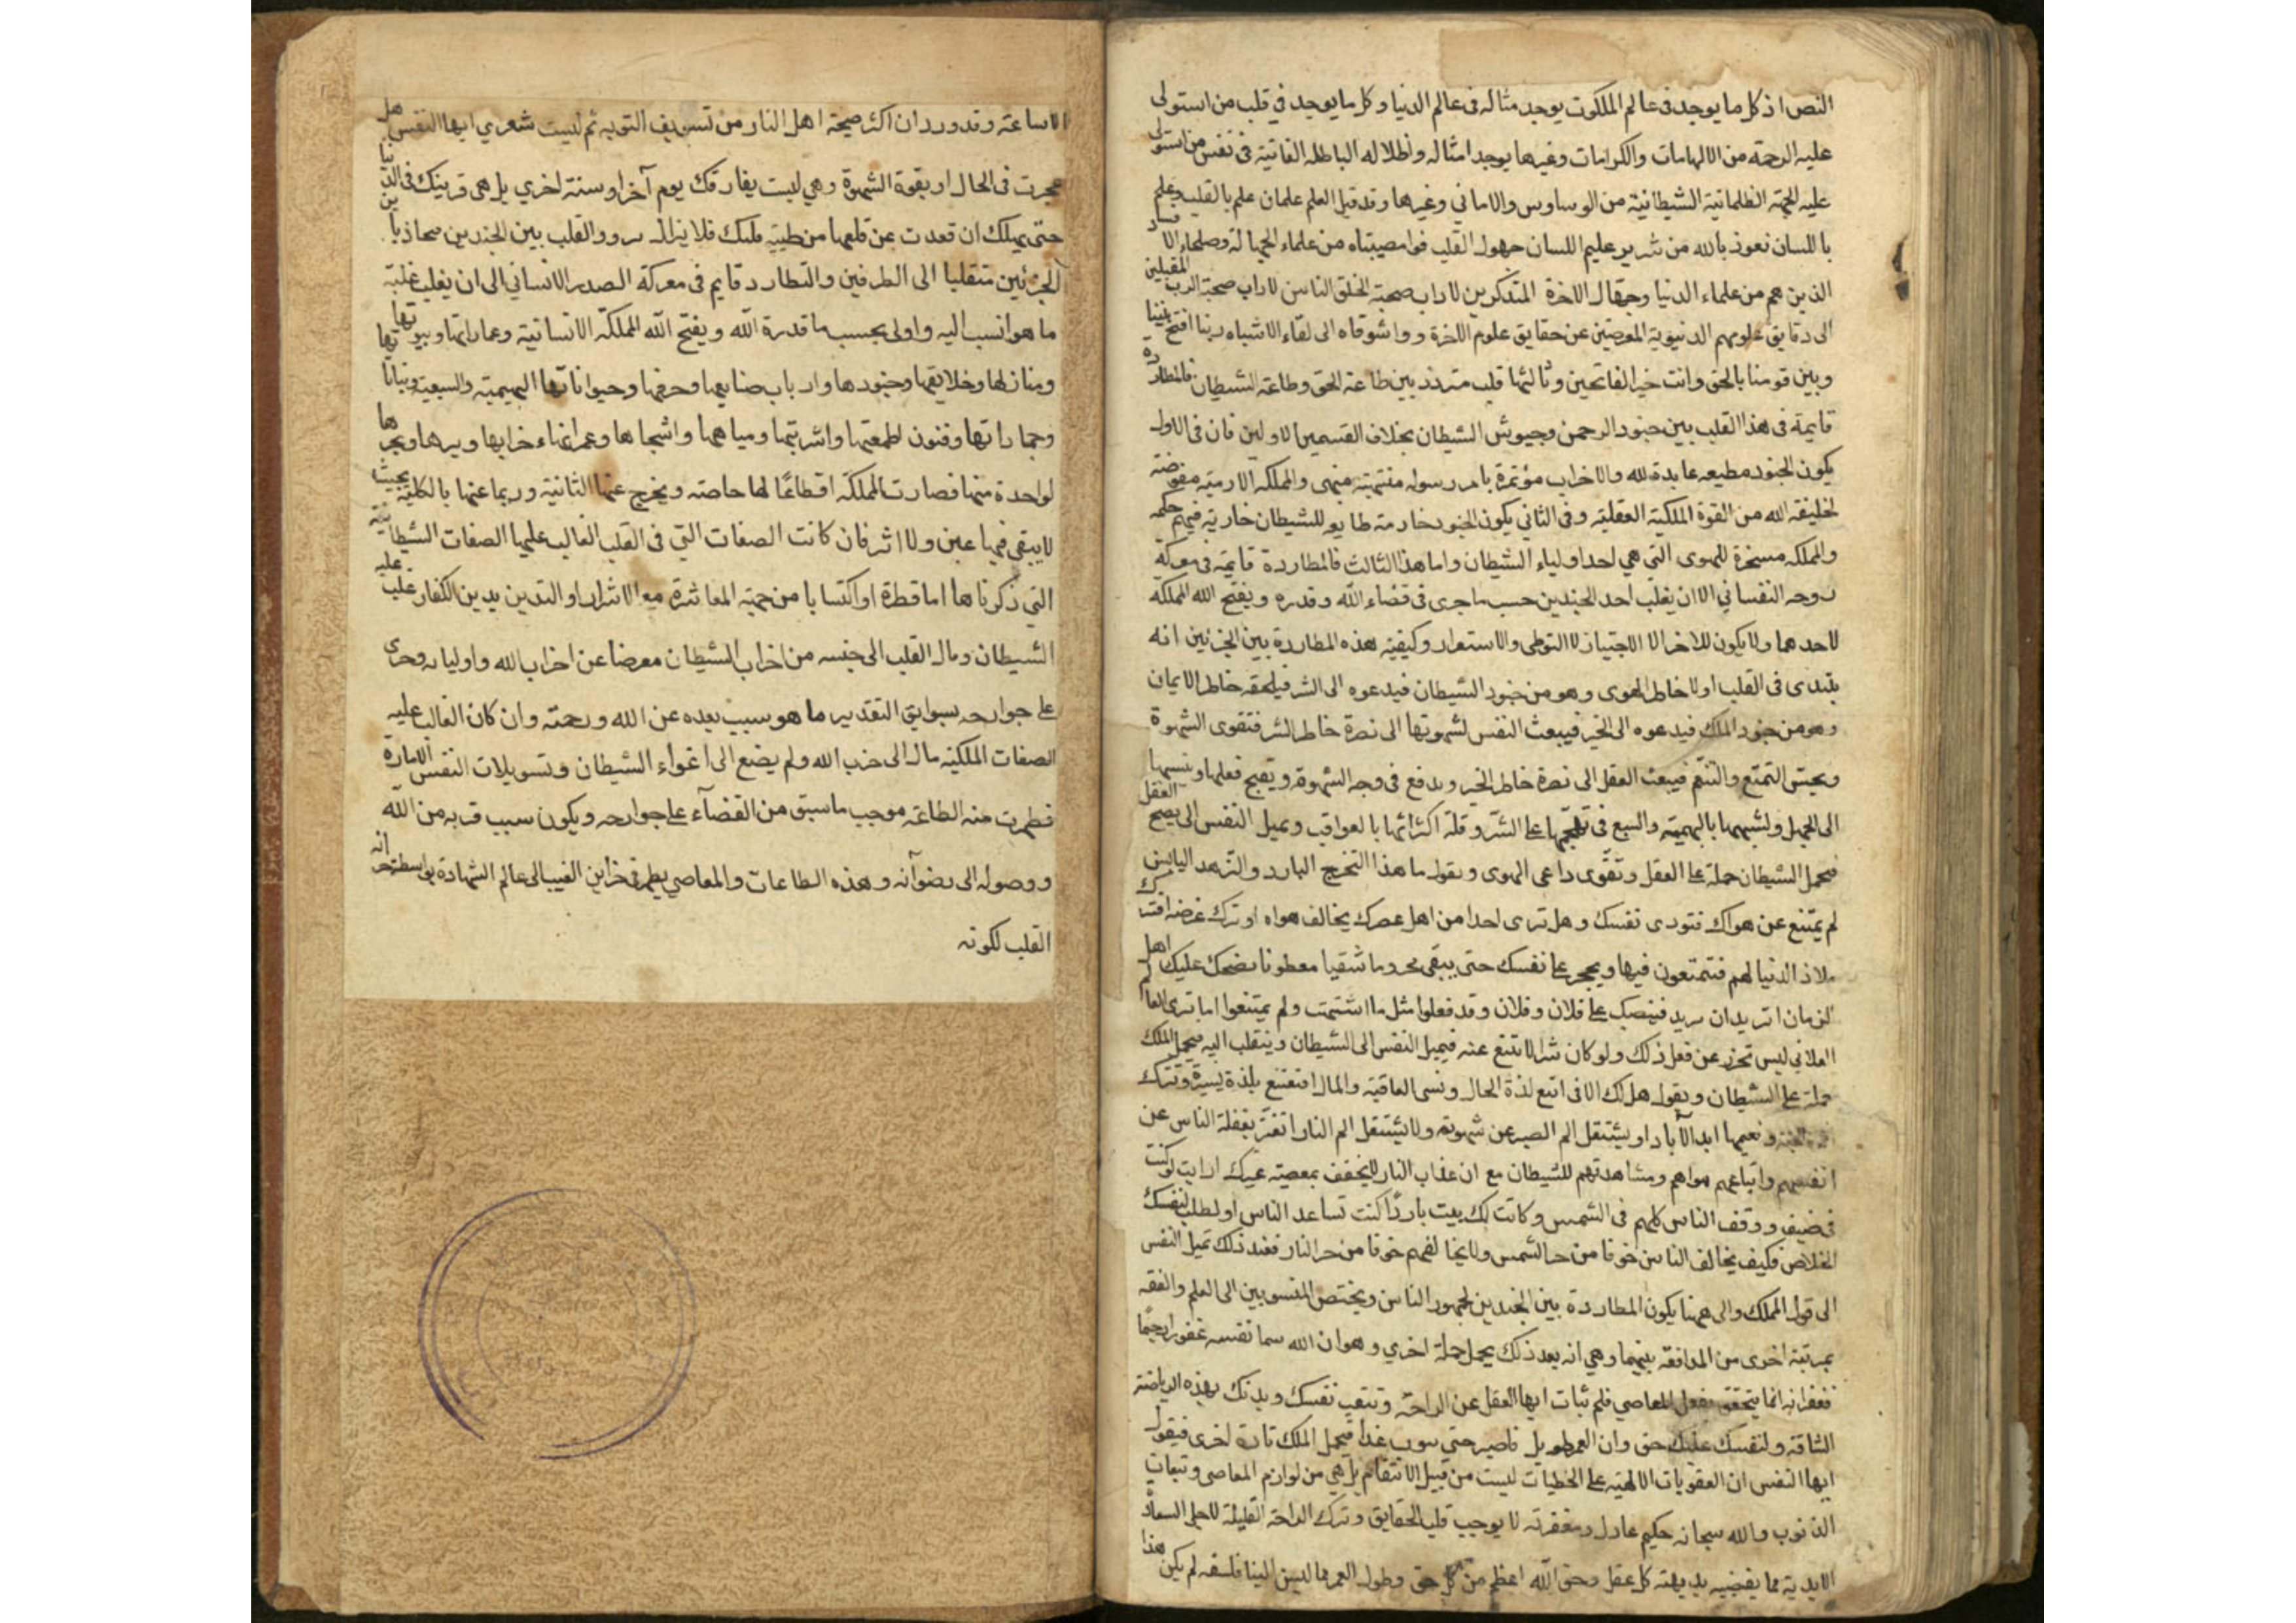 النص اذ كل ما يوجد فى عالم الملكوت يوجد مثاله فى عالم الدنيا وكل ما يوجد فى قلب من استولى
عليه الرحمة من الالهامات والكرامات وغيرها يوجد امثاله واظلاله الباطلة الفانية فى نفس من استولى
عليه الجهة الظلمانية الشيطانية من الوساوس والامانى وغيرها وقد قيل العلم علمان علم بالقلب وعلم
باللسان نعوذ بالله من شرير عليم اللسان جهول القلب فوا مصيبتاه من علماء الجهالة وصلحاء الا فساد
الذين هم من علماء الدنيا وجهال الاخرة المتذكرين لاداب صحبة الخلق الناسين لاداب صحبة الرب المقبلين
الى دقايق علومهم الدنيوية المعرضين عن حقايق علوم الاخرة وواشوقاه الى لقاء الاشباه ربنا افتح بيننا
وبين قومنا بالحق وانت خير الفاتحين وثالثها قلب متردد بين طاعة الحق وطاعة الشيطان فالمطاردة
قايمة فى هذا القلب بين جنود الرحمن وجيوش الشيطان بخلاف القسمين الاولين فان فى الاول
يكون الجنود مطيعة عابدة لله والاحزاب مؤتمرة بامر رسوله منتهية منهى والمملكة الادمية مفوضة
لخليفة الله من القوة الملكية العقلية وفى الثانى يكون الجنود خادمة للشيطان حكمه
والمملكة مسخرة للهوى التى هى احد اولياء الشيطان واما هذا الثالث فالمطاردة قايمة فى معركة
روحه النفسانى الا ان يغلب احد الجندين حسب ما جرى فى قضاء الله وقدره ويفتح الله المملكة
لاحدهما ولا يكون للاخر الا الاجتياز لا التوطن والاستقرار وكيفية هذه المطاردة بين الحزبين انه
يبتدى فى القلب اولا خاطر الهوى وهو من جنود الشيطان فيدعوه الى الشر فيلحقه خاطر الايمان
وهو من جنود الملك فيدعوه الى الخير فيبعث النفس لشهوتها الى نصرة خاطر الشر فتقوى الشهوة
ويحسن التمتع والتنعم فيبعث العقل الى نصرة خاطر الخير ويدفع فى وجه الشهوة ويقبح فعلها وينسبها
الى الجهل ويشبهها بالبهيمة والسبع فى تهجمها على الشر وقلة اكتراثها بالعواقب ويميل النفس الى نصح العقل
فيحمل الشيطان حملة على العقل وتقوى داعى الهوى ويقول ما هذا التحرج البارد والتزهد اليابس
لم يمتنع عن هواك فتودى نفسك وهل ترى احدا من اهل عصرك يخالف هواه او ترك غرضه افترك
ملاذ الدنيا لهم فتمتعون فيها ويحجر على نفسك حتى يبقى محروما شقيا يضحك عليك اهل
الزمان اتريد ان على فلان وفلان وقد فعلوا مثل ما اشتهيت ولم يمتنعوا اما ترى العالم
الفلانى ليس تحرز عن فعل ذلك ولو كان شرا لامتنع عنه فيميل النفس الى الشيطان وينقلب اليه فيحمل الملك
حملة على الشيطان ويقول هلك الا من اتبع لذة الحال ونسى العاقبة والمال افتقنع بلذة يسيرة وتترك
ونعيمها ابد الآباد او يستثقل الم الصبر عن شهوة ولا يستثقل الم النار اتغتر بغفلة الناس عن
انفسهم واتباعهم هواهم ومشاهدتهم للشيطان مع ان عذاب النار لا يخفف بمعصية غيرك ارايت لو كنت
فى صيف ووقف الناس كلهم فى الشمس وكانت لك بيت باردا كنت تساعد الناس او لطلب لنفسك
الخلاص فكيف يخالف الناس خوفا من حر الشمس ولا يخالفهم خوفا من حر النار فعند ذلك تميل النفس
الى قول الملك والى ههنا يكون المطاردة بين الجندين لجمهور الناس ويختص المنسوبين الى العلم والفقه
بمرتبة اخرى من المدافعة بينهما وهى انه بعد ذلك يحمل حملة اخرى وهو ان الله سما نفسه غفورا رحيما
فغفرانه انما يتحقق بفعل المعاصى فلم ايها العقل عن الراحة وتتعب نفسك وبدنك بهذه الرياضة
الشاقة ولنفسك عليك حق وان العمر طويل فاصبر حتى غدا فيحمل الملك تارة اخرى فيقول
ايها النفس ان العقوبات الالهية على الخطيات ليست من قبيل الانتقام بل هى من لوازم المعاصى وتبعات
الذنوب والله سبحانه حكيم عادل ومغفرته لا يوجب قلب الحقايق وترك الراحة القليلة لاجل السعادة
الابدية مما يقتضيه بديهة كل عقل وحق الله اعظم من كل حق وطول العمر مما ليس الينا فلسفه لم يكن هذا
الا ساعة وقد ورد ان اكثر صيحة اهل النار من تسويف التوبة ثم ليت شعري ايها النفس هل
عجزت فى الحال او بقوة الشهوة وهى ليست يفارقك يوم آخر او سنة اخري بل هى قرينك فى الدنيا
حتى يهلك ان قعدت عن قلعها من طينة قلبك فلا يزال والقلب بين الجندين متجاذبا بين
الحزبين متقلبا الى الطرفين والتطارد قايم فى معركة الصدر الانسانى الى ان يغلب غلبة
ما هو انسب اليه واولى بحسب ما قدرة الله ويفتح الله المملكة الانسانية وعماراتها وبيوتها
ومنازلها وخلايقها وجنودها وارباب صنايعها وحرفها وحيواناتها البهيمية والسبعية ونباتاتها
وجماداتها وفنون اطعمتها واشربتها ومياهها واشجارها وعمرانها وخرابها وبرها وبحرها
لواحدة منها فصارت المملكة اقطاعًا لها خاصة ويخرج عنها الثانية وربما عنها بالكلية بحيث
لا يبقى فيها عين ولا اثر فان كانت الصفات التى فى القلب الغالب عليها الصفات الشيطانية
التى ذكرناها اما فطرة او اكتسابا من جهة المعاشرة مع الاشرار او التدين بدين الكفار غلب عليه
الشيطان ومال القلب الى جنسه من احزاب الشيطان معرضا عن احزاب الله واوليائه وجرى
على جوارحه بسوابق التقدير ما هو سبب بعده عن الله ورحمته وان كان الغالب عليه
الصفات الملكية مال الى حزب الله ولم يصغ الى اغواء الشيطان وتسويلات النفس الامارة
فظهرت منه الطاعة موجب ما سبق من القضآء على جوارحه ويكون سبب قربه من الله
ووصوله الى رضوآنه وهذه الطاعات والمعاصى يظهر فى خزاين الغيب الى عالم الشهادة بواسطة خزانه
القلب لكونه